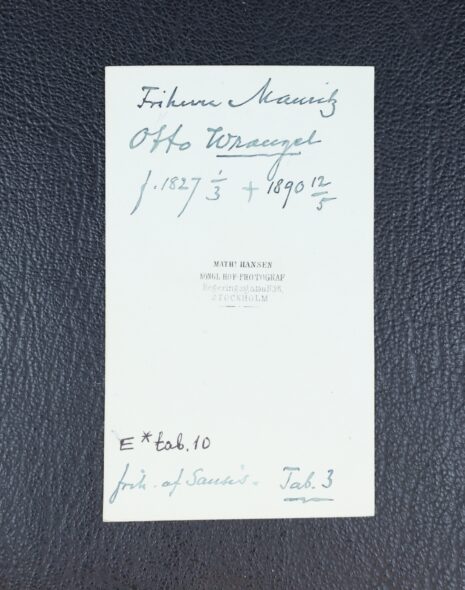 Friherre Mauritz
Otto Wrangel
f. 1827 1/3 + 1890 12/5
MATHS HANSEN
KONGL. HOF-FOTOGRAF
Regeringsgatan
STOCKHOLM
E* tab. 10
frih. af Sauss. Tab. 3